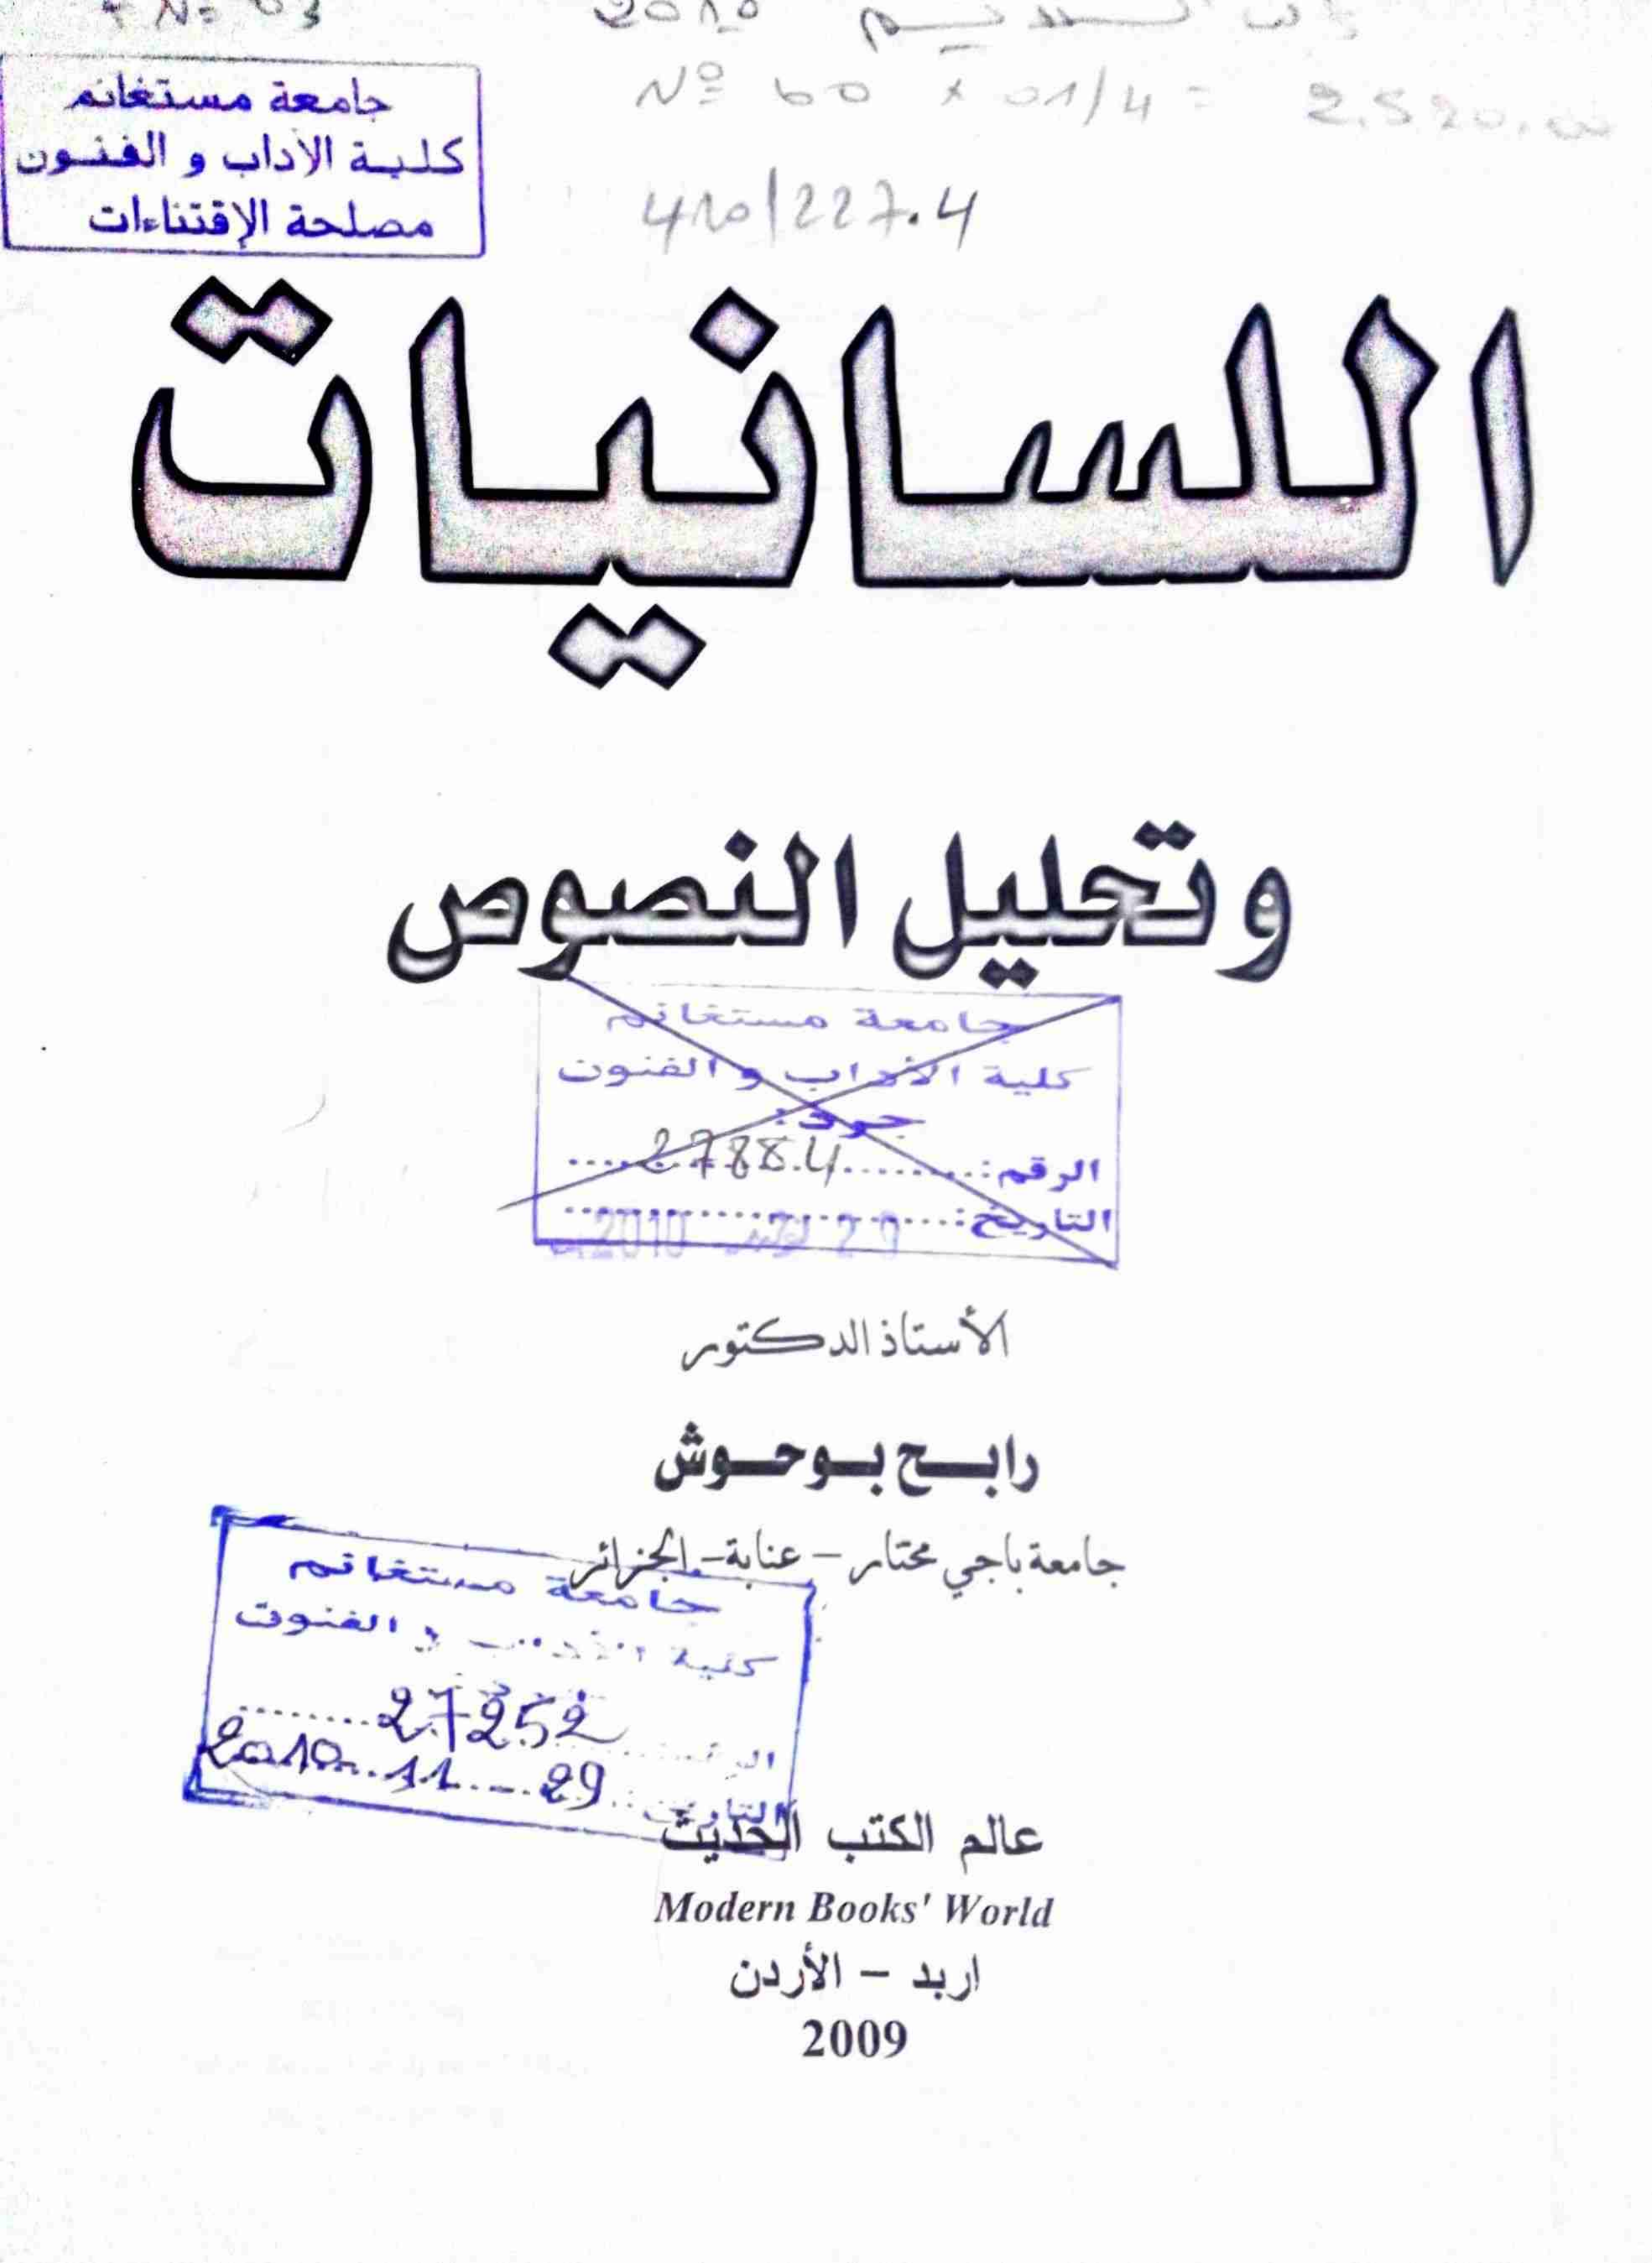 2010
Nº 60 x 01/4 = 2.520,00
جامعة مستغانم
كلية الآداب و الفنون
مصلحة الإقتناءات
410/227.4
اللسانيات
وتحليل النصوص
جامعة مستغانم
كلية الأداب و الفنون
جرد:
الرقم: 2788.4
التاريخ: 2010
الأستاذ الدكتور
رابح بوحوش
جامعة باجي مختار - عنابة - الجزائر
جامعة مستغانم
كلية الأداب و الفنون
27252
التاريخ: 29 - 11 - 2010
عالم الكتب الحديث
Modern Books' World
اربد - الأردن
2009